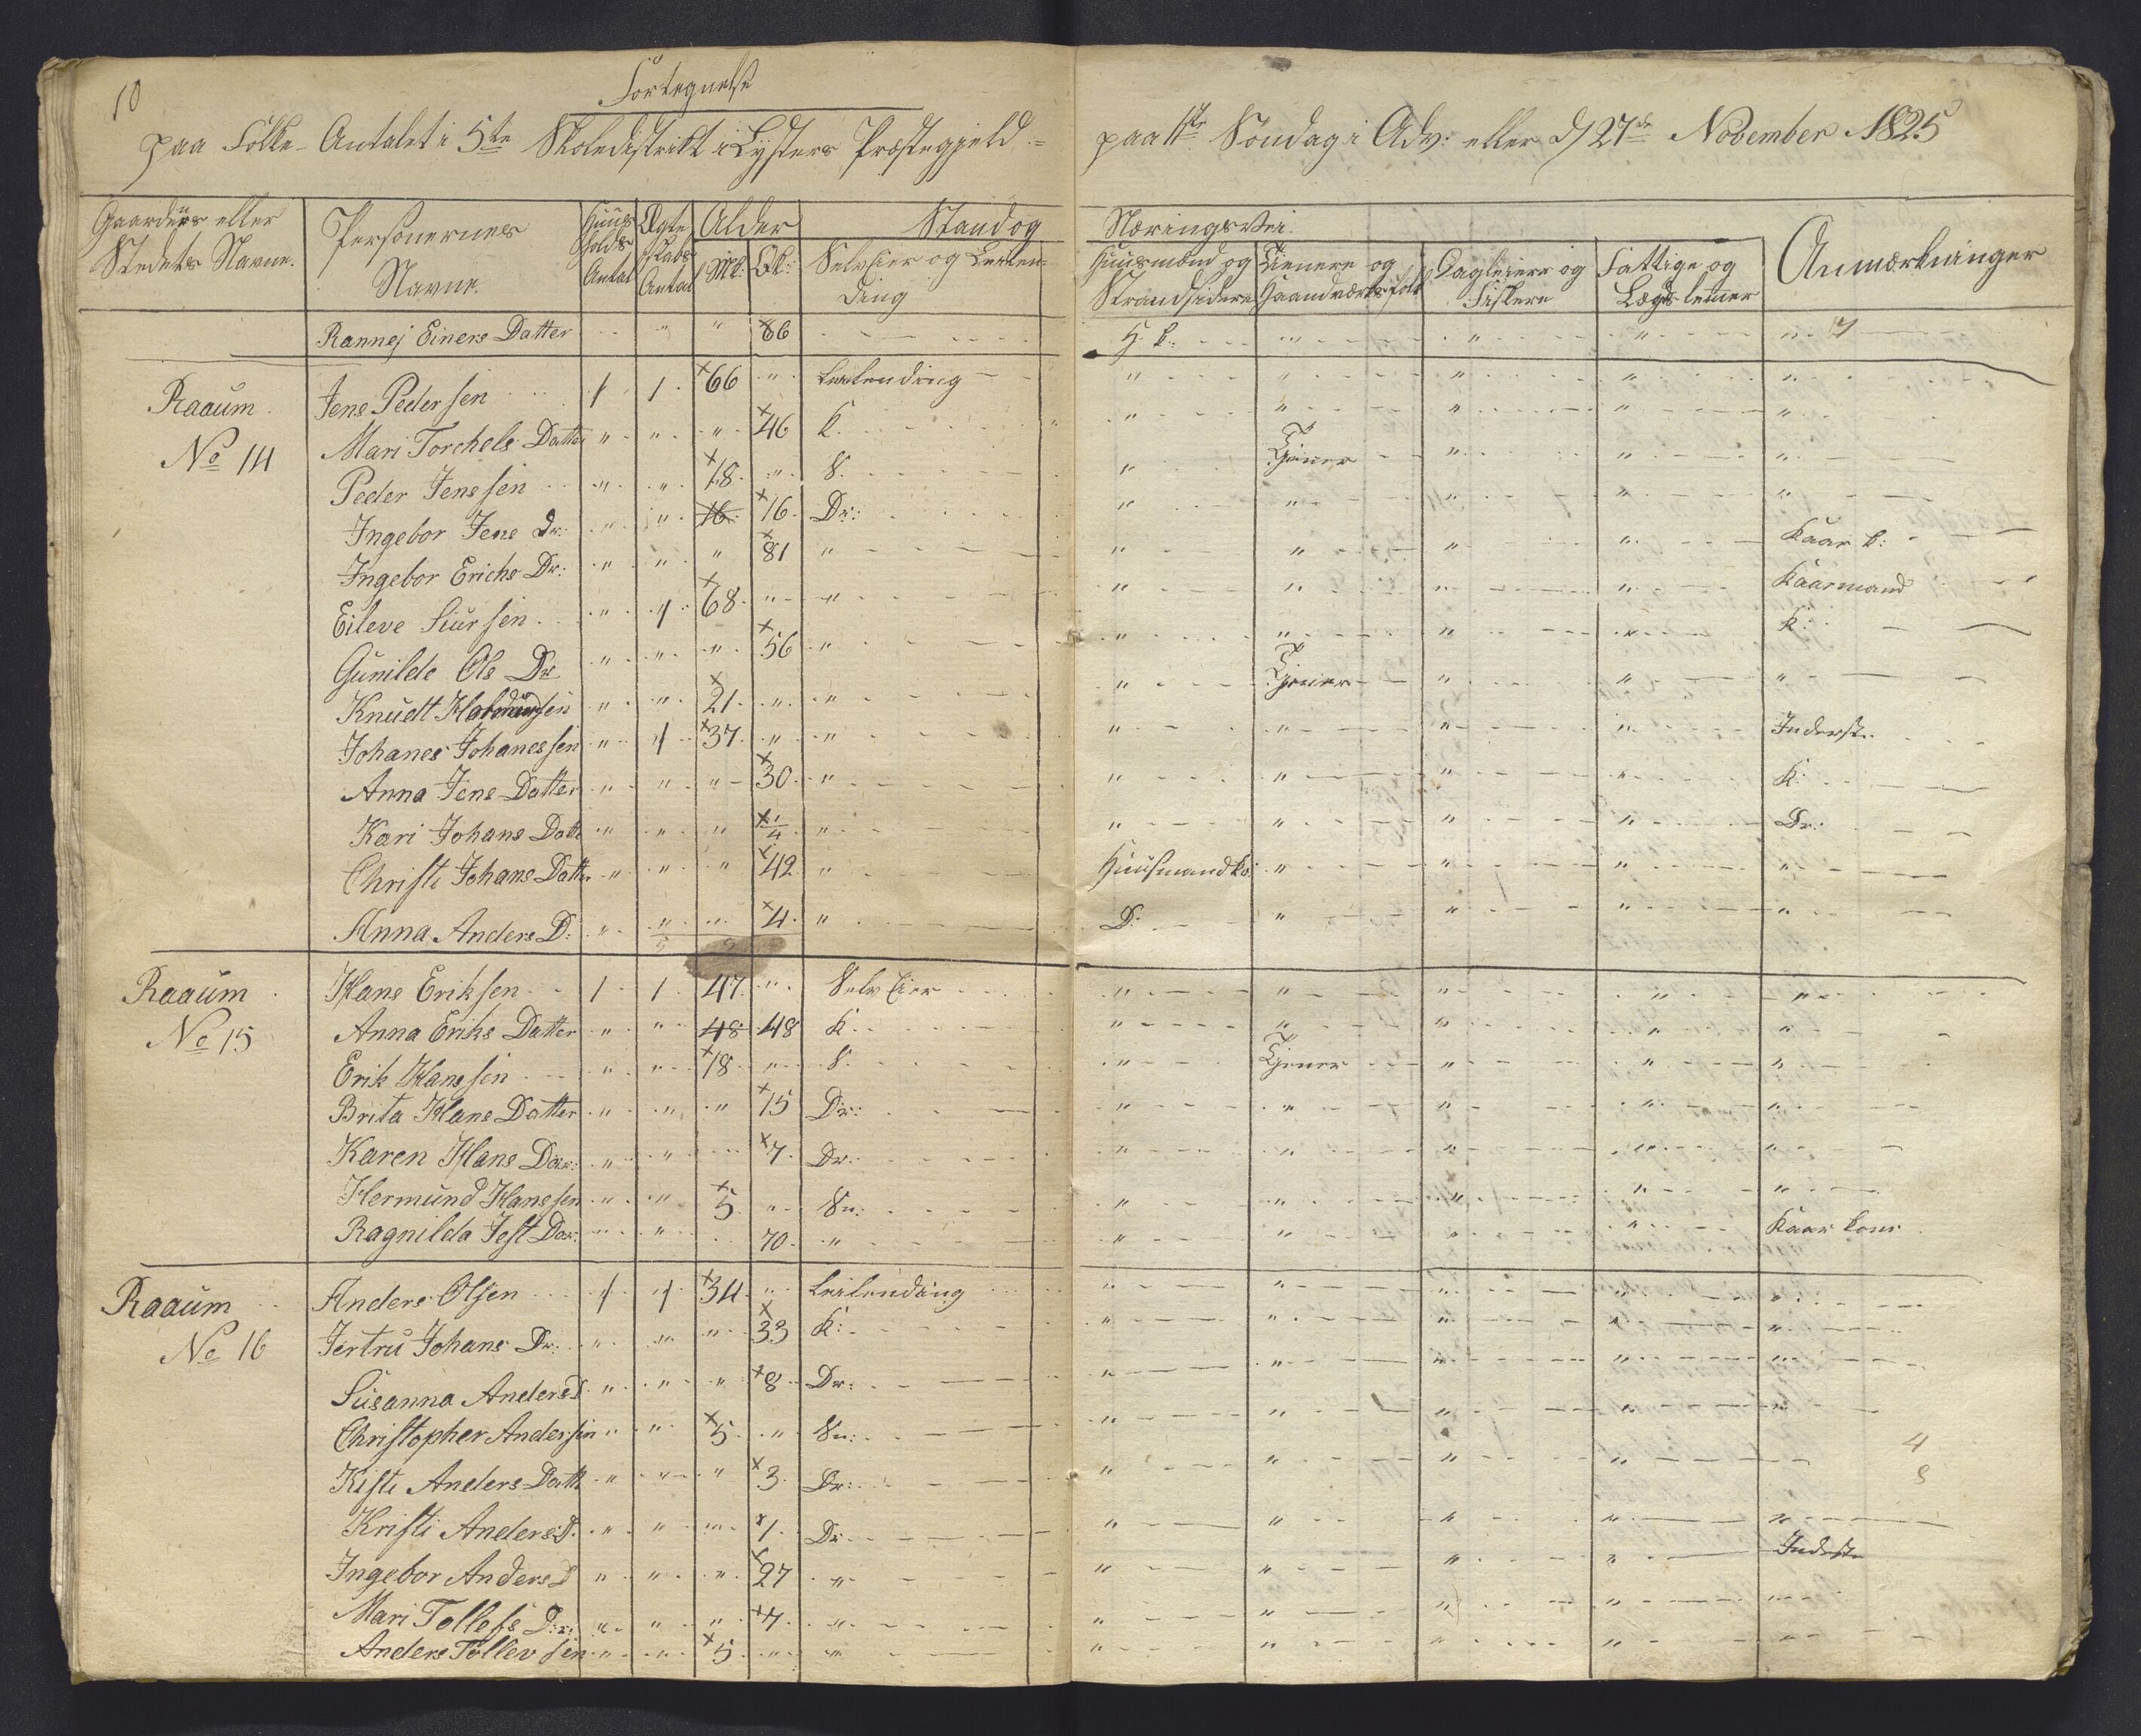 10
Fortegnelse
paa Folke-Antalet i 5te Skoledistrikt i Lysters Præstegjeld
paa 1ste Søndag i Adv: eller d 27de November 1825
Gaardens eller Stedets Navne. Personernes Navne. Huusholds Antal Ægteskabs Antal Alder Mk: Qk: Stand og Næringsvei.
Selveier og Leilending Huusmænd og Strandsidere Tienere og Haandværksfolk Dagleiere og Fiskere Fattige og Lægdslemmer Anmærkninger
Rannej Einers Datter " " 66 H. k: " " " "
Raaum No 14 Jens Pedersen 1 1 66 " Leilending " " " " "
Mari Torchels Datter " " " 46 K. " " " " "
Peder Jenssen " " 18 " S. " Tjener " " "
Ingebor Jens Dr: " " 16 16 Dr: " " " " "
Ingebor Erichs Dr: " " " 81 " " " " " Kaar k:
Eileve Siursen " 1 68 " " " " " " Kaarmand
Gunilde Ols Dr " " " 56 " " " " " K:
Knudt " " 21 " " " Tjener " " "
Johanes Johanessen " 1 37 " " " " " " Inderst.
Anna Jens Datter " " " 30 " " " " " K:
Kari Johans Datt " " " 1/4 " " " " " Dr:
Christi Johans Datter " " " 42 " Huusmandko: " " " "
Anna Anders D: " " " 4 " D: " " " "
Raaum No 15 Hans Eriksen 1 1 47 " Selveier " " " " "
Anna Eriks Datter " " 48 48 K. " " " " "
Erik Hanssen " " 18 " S. " Tjener " " "
Brita Hans Datter " " " 15 Dr: " " " " "
Karen Hans Dar: " " 7 Dr: " " " " "
Hermund Hanssen " " 5 " Sn: " " " " "
Ragnilda Jest Dar: " " 70 " " " " " Kaar kone
Raaum No 16 Anders Olsen 1 1 34 " Leilending " " " " "
Jertru Johans Dr: " " " 33 K: " " " " "
Susanna Anders D " " " 8 Dr: " " " " "
Christopher Andersen " " 5 " Sn: " " " " "
Kisti Anders Datt " " " 3 Dr: " " " " 4
8
Kristi Anders D. " " " 1 Dr " " " " "
Ingebor Anders D " " " 27 " " " " " Inderste
Mari Tollefs Dr: " " " 7 " " " " " "
Anders Tollevsen " " 5 " " " " " " "